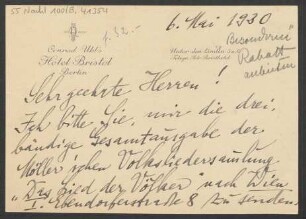 55 Nachl 100/B, 41354
f. 32.-
6. Mai 1930
Conrad Uhl's
Hôtel Bristol
Berlin
Unter den Linden
Besonderen
Rabatt
anbieten
Sehr geehrte Herren!
Ich bitte Sie, mir die drei-
bändige Gesamtausgabe der
Möller'schen Volksliedersammlung
"Das Lied der Völker" nach Wien
I. Ebendorferstraße 8 zu senden.